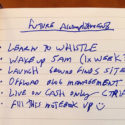 FUTURE ACCOMPLISHMENTS
- LEARN TO WHISTLE
- WAKE UP 5AM (1x WEEK)
- LAUNCH FINDS SITE
- OFFLOAD MANAGEMENT
- LIVE ON CASH ONLY
- FILL THIS NOTEBOOK UP